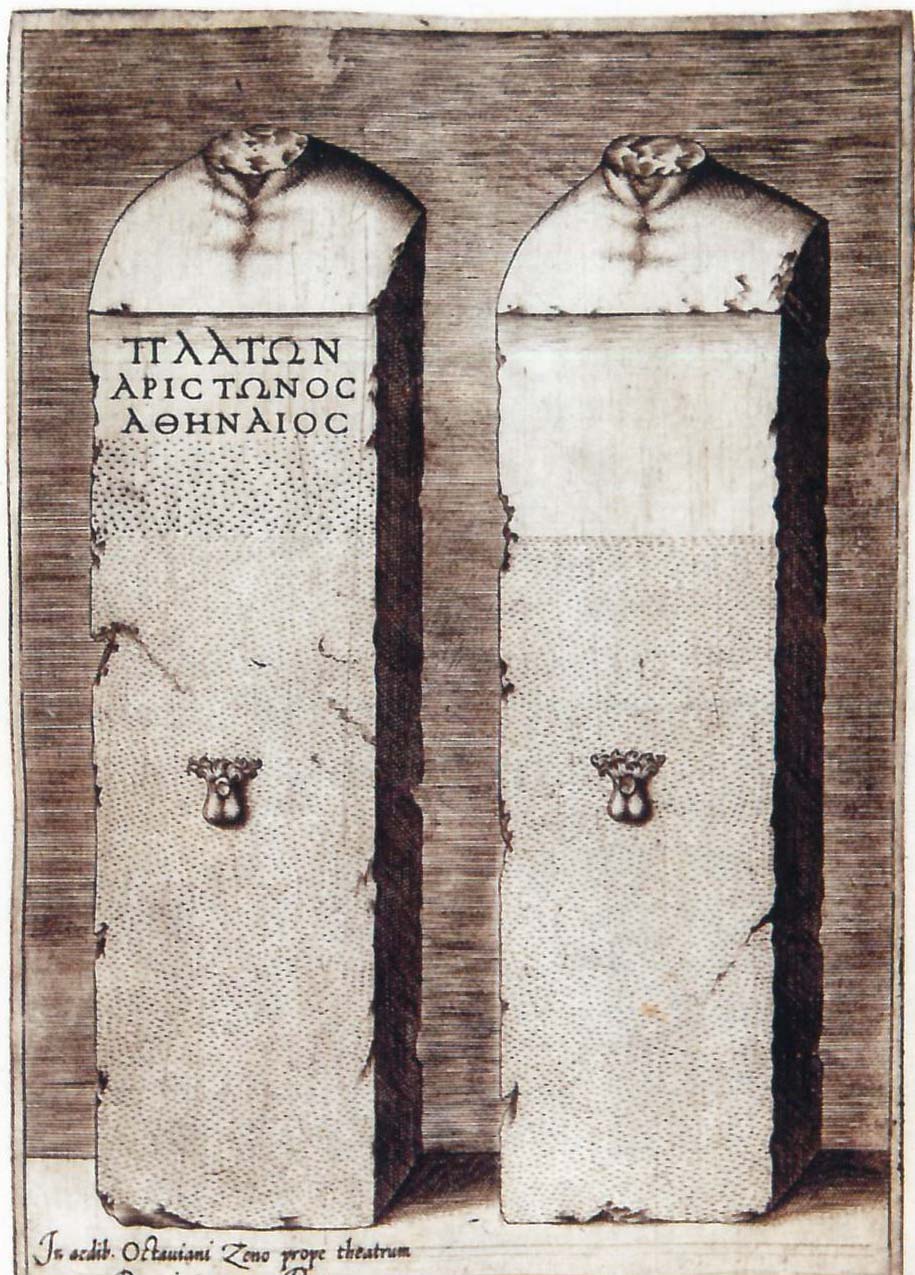 ΠΛΑΤΩΝ
ΑΡΙϹΤΩΝΟϹ
ΑΘΗΝΑΙΟϹ
In aedib. Octauiani Zeno prope theatrum